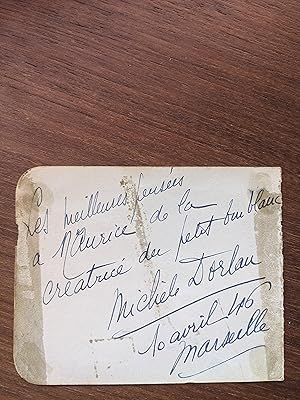 Les meilleures pensées
à Maurice de la
créatrice du petit vin blanc
Michèle Dorlan
10 avril 46
Marseille